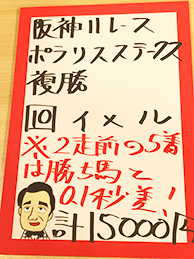 阪神11レース
ポラリスステークス
複勝
10 イメル
※2走前の5着
は勝ち馬と
0.1秒差!
計15000円